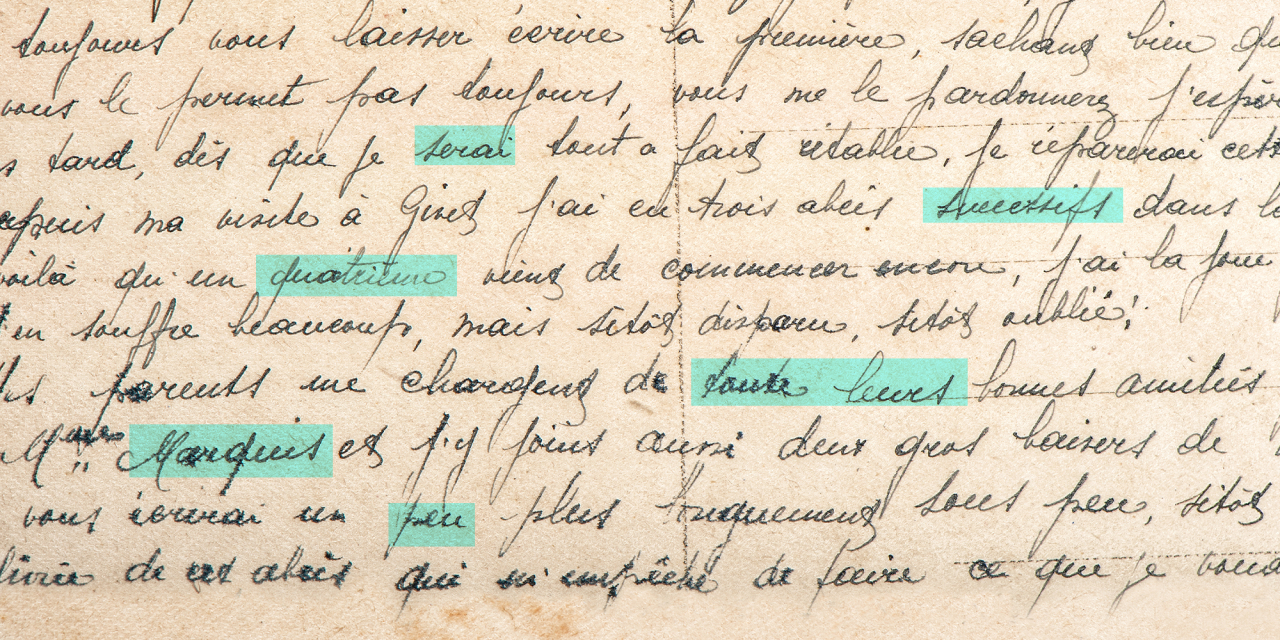 toujours vous laisser écrire la première, sachant bien qu
vous le permet pas toujours, vous me le pardonnerez j'espèr
s tard, dès que je serai tout a fait rétablie, je réparerai cett
epuis ma visite à Givet j'ai eu trois abcès successifs dans l
voilà qu'un quatrième vient de commencer encore, j'ai la joue
en souffre beaucoup, mais sitôt disparu, sitôt oublié!
es parents me chargent de toute leurs bonnes amitiés
Marquis et j'y joins aussi deux gros baisers de
vous écrirai un peu plus longuement sous peu, sitôt
livrée de ces abcès qui m'empêche de faire ce que je vous